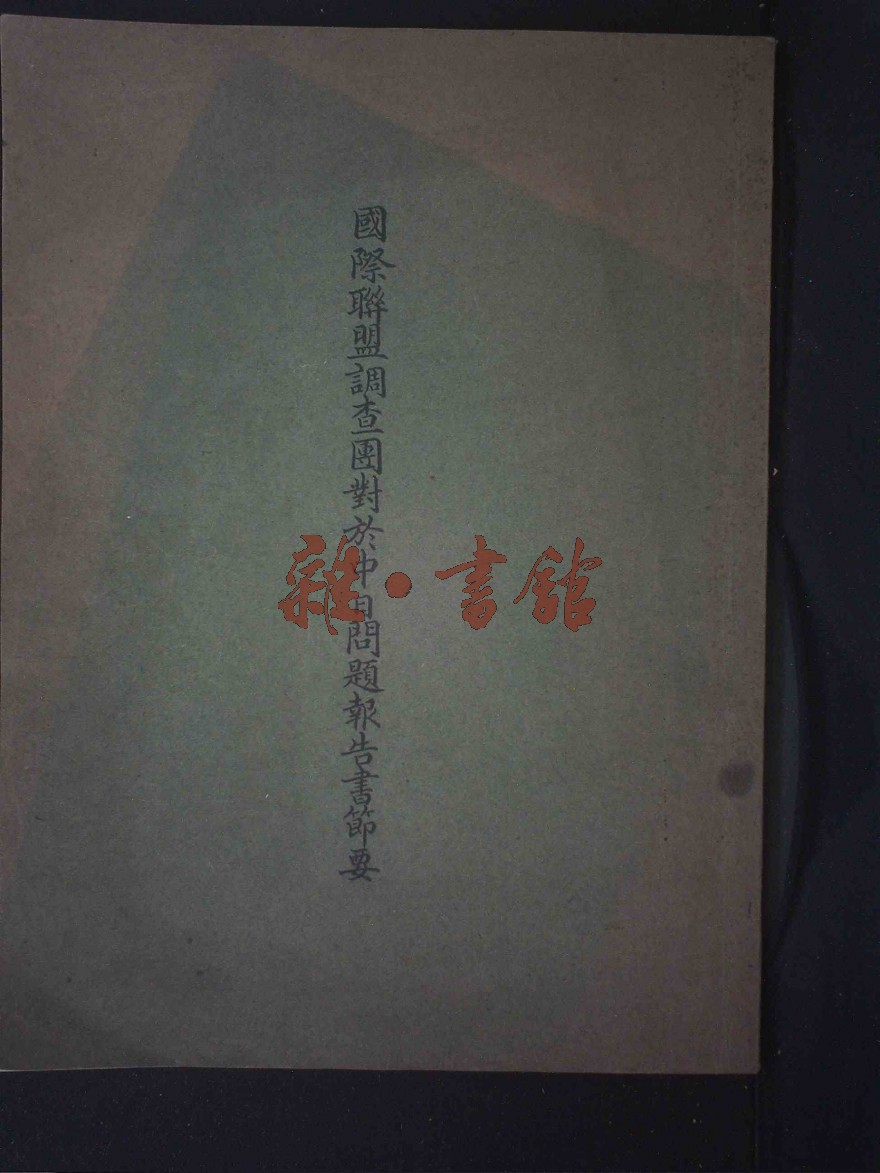 國際聯盟調查團對於中日問題報告書節要
雜·書館